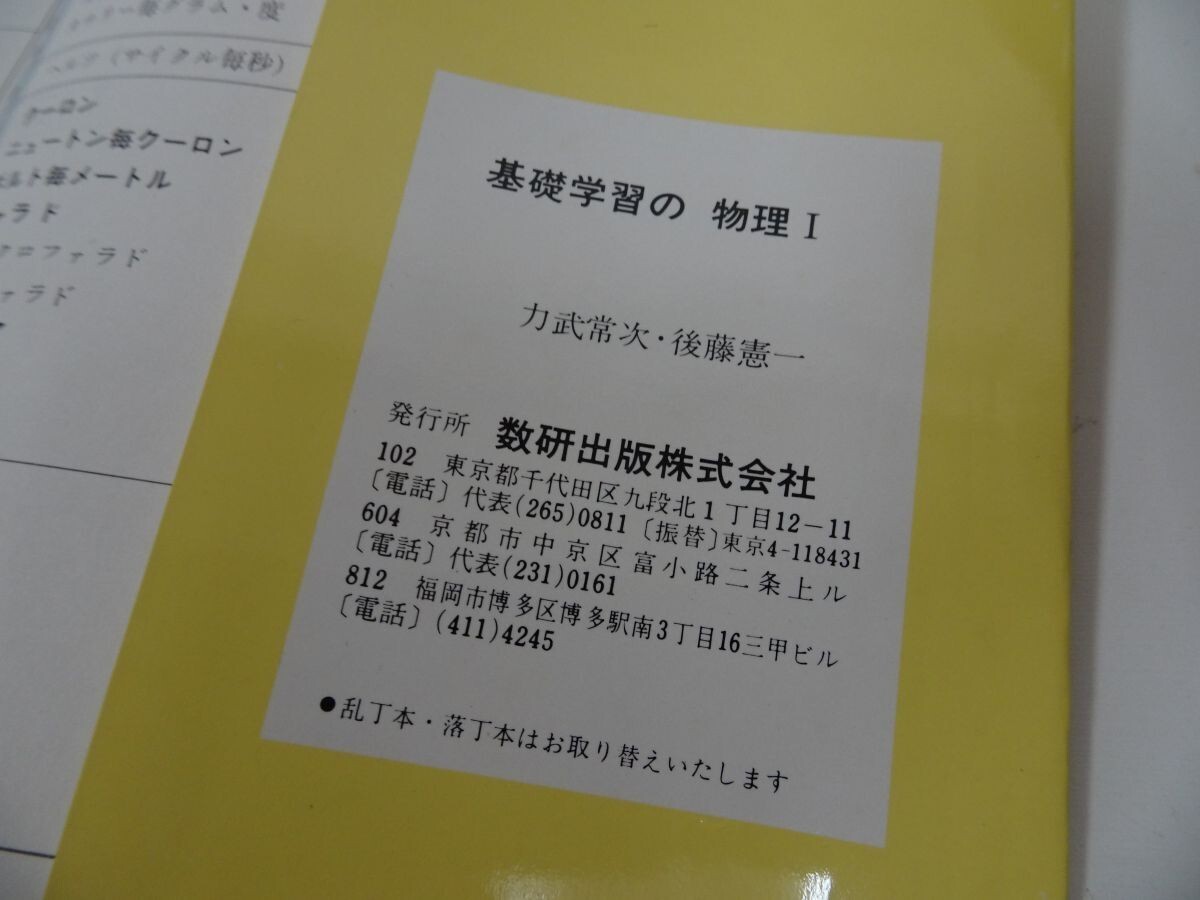 グラム・度
(サイクル毎秒)
クーロン
ニュートン毎クーロン
ルト毎メートル
ラド
ファラド
ラド
基礎学習の 物理 I
力武常次・後藤憲一
発行所 数研出版株式会社
102 東京都千代田区九段北1丁目12-11
〔電話〕代表(265)0811〔振替〕東京4-118431
604 京都市中京区富小路二条上ル
〔電話〕代表(231)0161
812 福岡市博多区博多駅南3丁目16三甲ビル
〔電話〕(411)4245
●乱丁本・落丁本はお取り替えいたします